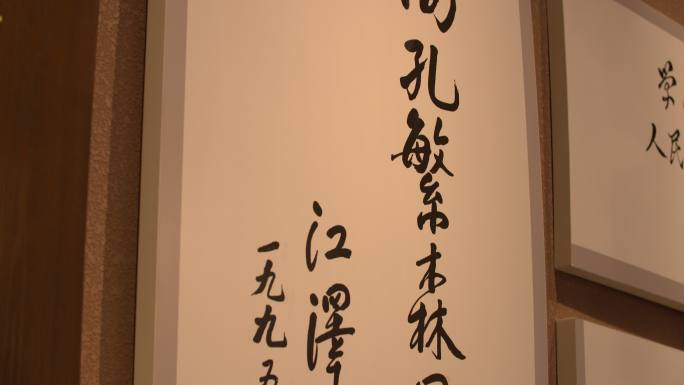 向孔繁森
江澤
一九九五
人民